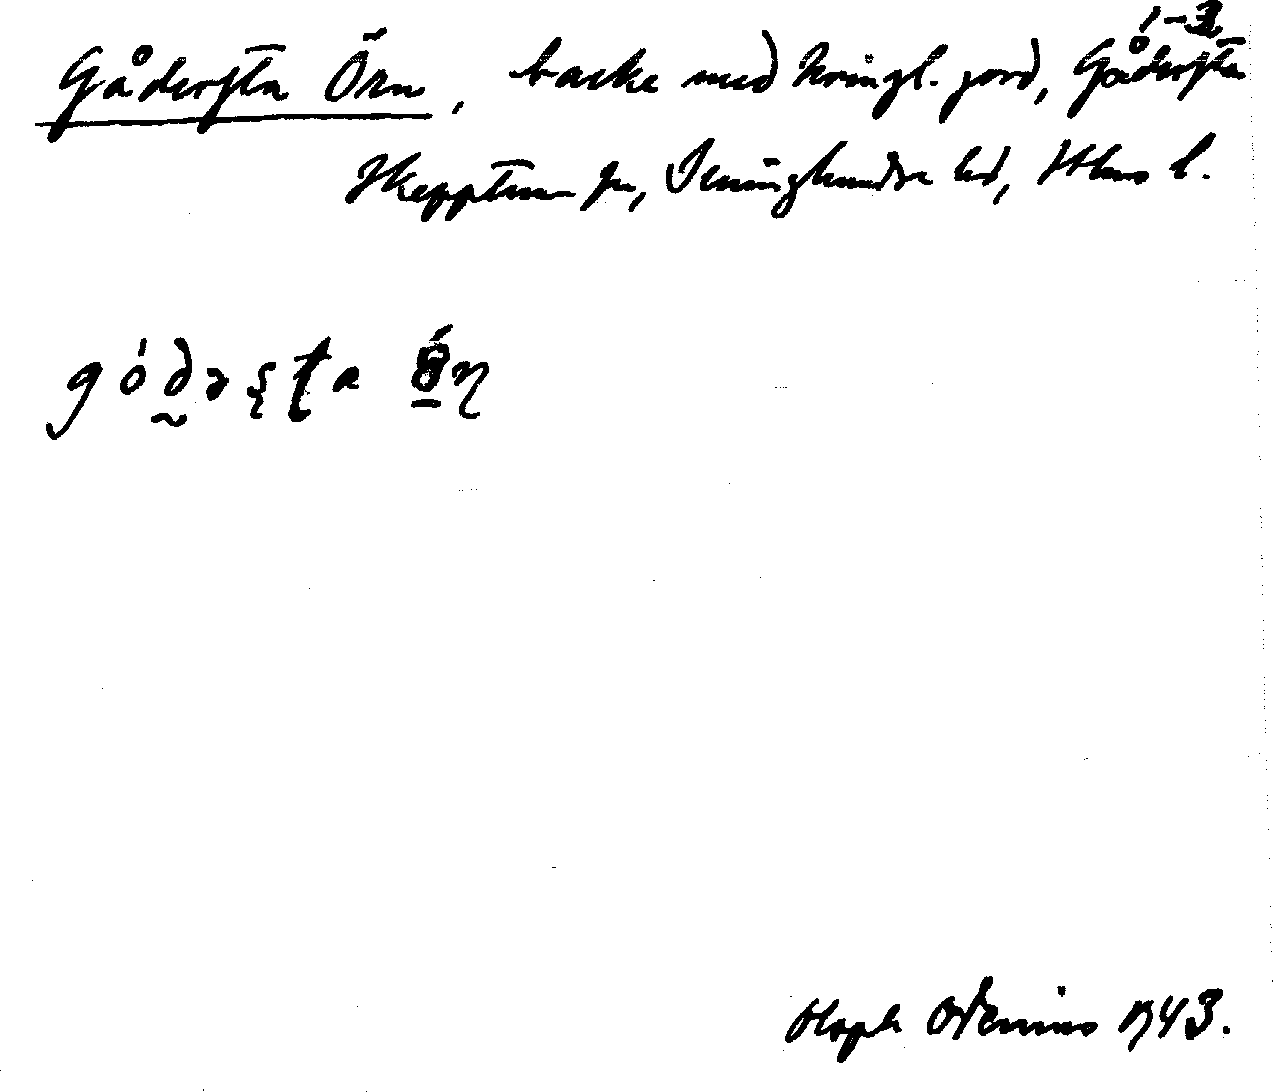 Gådersta Örn, backe med kringl. jord, Gådersta 1-2
Skepptuna sn, Seminghundra hd, Sthms l.
gó̰dəʂʈa
Oloph Odenius 1943.